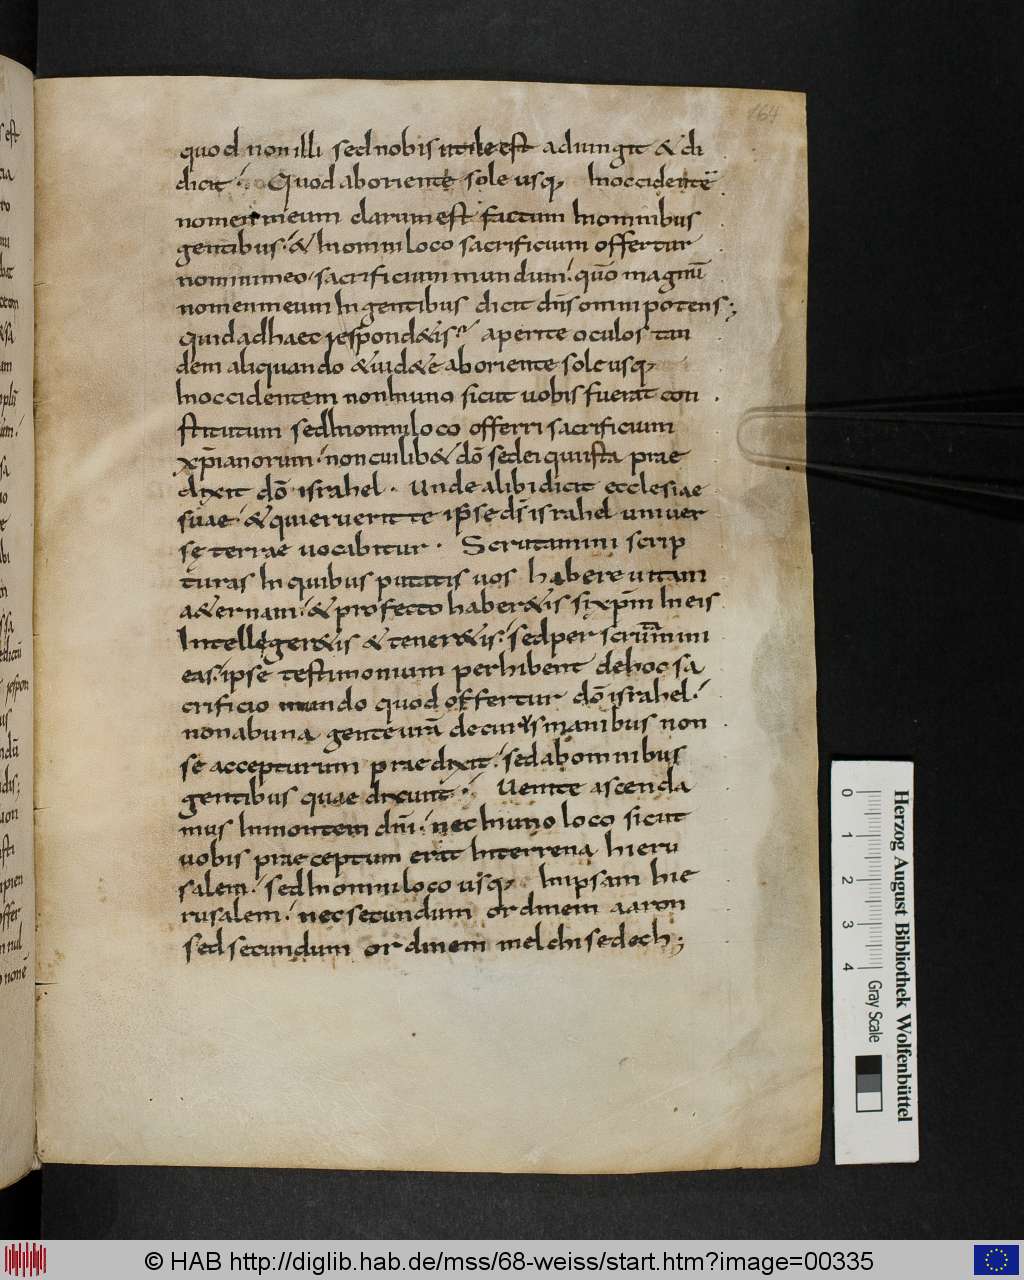 164
quod non illi sed nobis utile est adiungit & di
dicit· Quod ab oriente sole usq; In occidentē
nomen meum clarum est factum In omnibus
gentibus· & In omni loco sacrificium offertur
nomini meo· sacrificium mundum· quō magnū
nomen meum In gentibus dicit dn̄s omnipotens;
quid ad haec respond&is? aperite oculos tan
dem aliquando & uid&e ab oriente sole usq;
In occidentem non In uno sicut uobis fuerat con
stitutum sed In omni loco offerri sacrificium
xp̄ianorum· non cuilib& dō sed ei qui ista prae
dixit dō israhel· Unde alibi dicit ecclesiae
suae· & qui eruerit te ip̄se ds̄ israhel uniuer
sę terrae uocabitur· Scrutamini scrip
turas In quibus putatis uos habere uitam
a&ernam· & profecto haber&is si xp̄m In eis
Intelleger&is & tener&is· sed perscrutamini
eas· ipse testimonium perhibent de hoc sa
crificio mundo quod offertur dō israhel·
non ab una gente urā de cuius manibus non
se accepturum praedixit· sed ab omnibus
gentibus quae dixunt· Uenite ascenda
mus In montem dn̄i· nec In uno loco sicut
uobis praeceptum erat In terrena hieru
salem· sed In omni loco usq; In ipsam hie
rusalem· nec secundum ordinem aaron
sed secundum ordinem melchisedech;
Herzog August Bibliothek Wolfenbüttel
0 1 2 3 4 Gray Scale
© HAB http://diglib.hab.de/mss/68-weiss/start.htm?image=00335